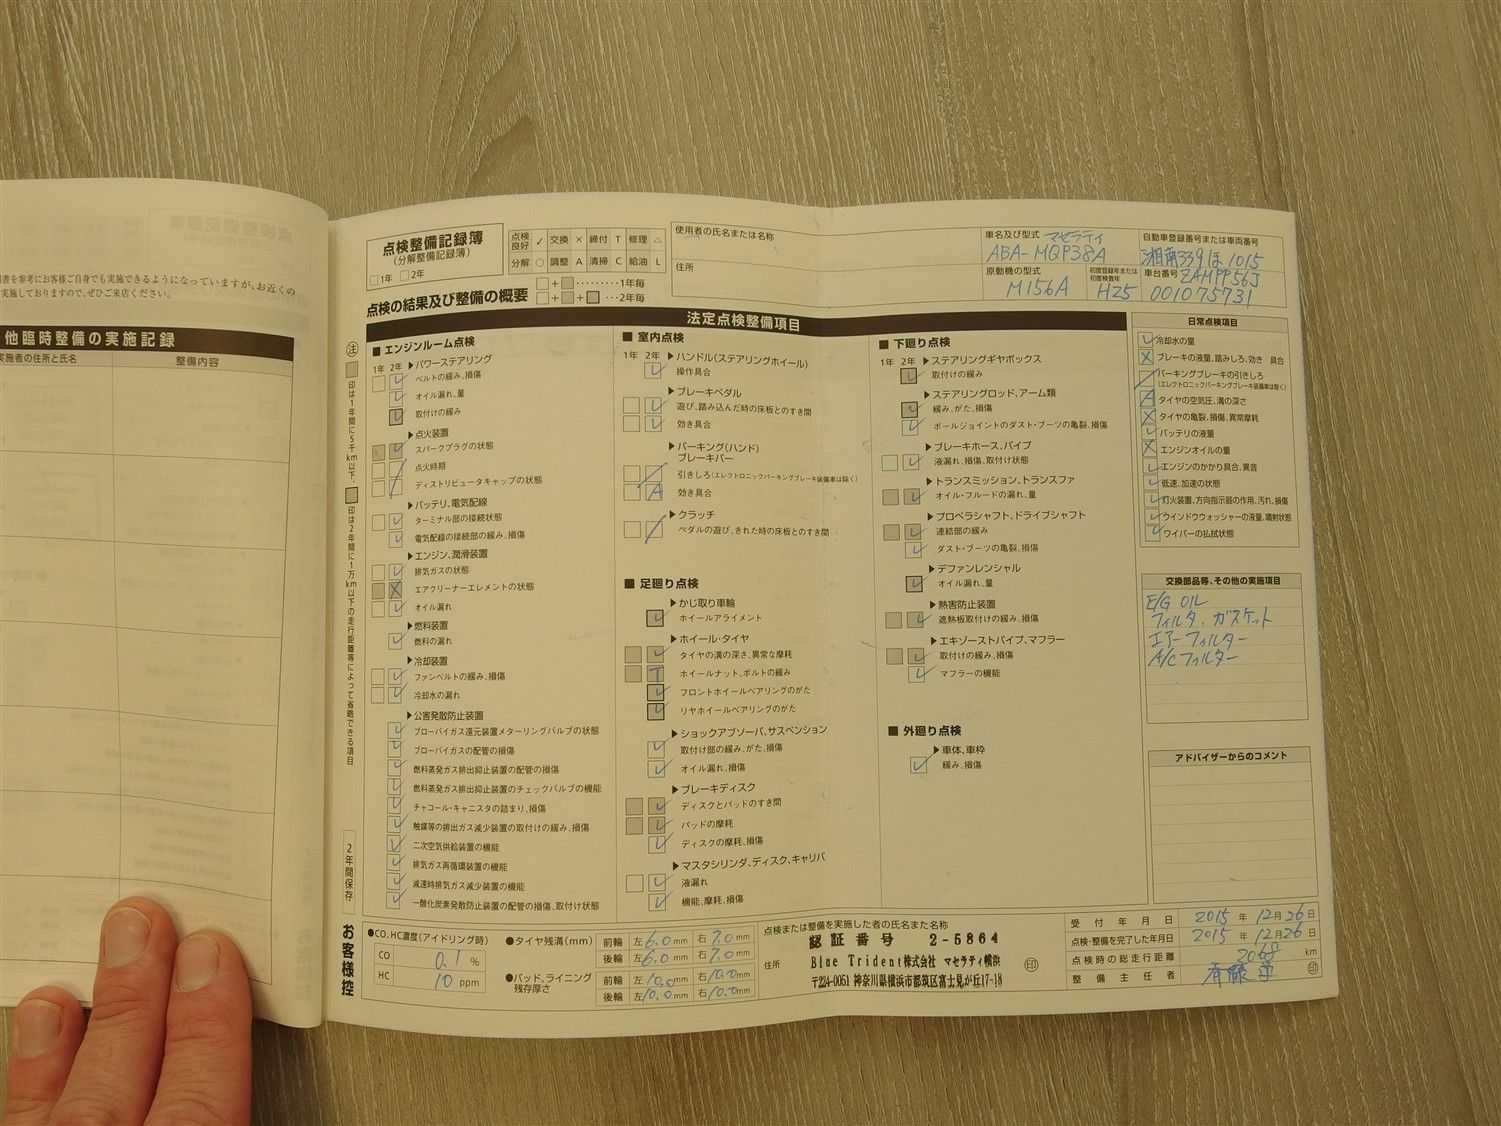 書を参考にお客様ご自身でも実施できるようになっていますが、お近くの
実施しておりますので、ぜひご来店ください。
他臨時整備の実施記録
実施者の住所と氏名
整備内容
点検整備記録簿
(分解整備記録簿)
□1年 □2年
点検良好 ✓ 交換 × 締付 T 修理 △
分解 ○ 調整 A 清掃 C 給油 L
□+□………1年毎
□+□+□…2年毎
点検の結果及び整備の概要
使用者の氏名または名称
住所
車名及び型式 マセラティ
ABA-MQP38A
原動機の型式
M156A
初度登録年または初度検査年
H25
自動車登録番号または車両番号
湘南339ほ1015
車台番号 ZAMPP56J
001075731
法定点検整備項目
注 □印は1年間に5千km以下、□印は2年間に1万km以下の走行距離等によって省略できる項目
2年間保存
お客様控
■ エンジンルーム点検
1年 2年 ▶パワーステアリング
ベルトの緩み、損傷
オイル漏れ、量
取付けの緩み
▶点火装置
スパークプラグの状態
点火時期
ディストリビュータキャップの状態
▶バッテリ、電気配線
ターミナル部の接続状態
電気配線の接続部の緩み、損傷
▶エンジン、潤滑装置
排気ガスの状態
エアクリーナーエレメントの状態
オイル漏れ
▶燃料装置
燃料の漏れ
▶冷却装置
ファンベルトの緩み、損傷
冷却水の漏れ
▶公害発散防止装置
ブローバイガス還元装置メターリングバルブの状態
ブローバイガスの配管の損傷
燃料蒸発ガス排出抑止装置の配管の損傷
燃料蒸発ガス排出抑止装置のチェックバルブの機能
チャコール・キャニスタの詰まり、損傷
触媒等の排出ガス減少装置の取付けの緩み、損傷
二次空気供給装置の機能
排気ガス再循環装置の機能
減速時排気ガス減少装置の機能
一酸化炭素発散防止装置の配管の損傷、取付け状態
■ 室内点検
1年 2年 ▶ハンドル(ステアリングホイール)
操作具合
▶ブレーキペダル
遊び、踏み込んだ時の床板とのすき間
効き具合
▶パーキング(ハンド)
ブレーキバー
引きしろ(エレクトロニックパーキングブレーキ装備車は除く)
A 効き具合
▶クラッチ
ペダルの遊び、きれた時の床板とのすき間
■ 足廻り点検
▶かじ取り車輪
ホイールアライメント
▶ホイール・タイヤ
タイヤの溝の深さ、異常な摩耗
T ホイールナット、ボルトの緩み
フロントホイールベアリングのがた
リヤホイールベアリングのがた
▶ショックアブソーバ、サスペンション
取付け部の緩み、がた、損傷
オイル漏れ、損傷
▶ブレーキディスク
ディスクとパッドのすき間
パッドの摩耗
ディスクの摩耗、損傷
▶マスタシリンダ、ディスク、キャリパ
液漏れ
機能、摩耗、損傷
■ 下廻り点検
1年 2年 ▶ステアリングギヤボックス
取付けの緩み
▶ステアリングロッド、アーム類
緩み、がた、損傷
ボールジョイントのダスト・ブーツの亀裂、損傷
▶ブレーキホース、パイプ
液漏れ、損傷、取付け状態
▶トランスミッション、トランスファ
オイル・フルードの漏れ、量
▶プロペラシャフト、ドライブシャフト
連結部の緩み
ダスト・ブーツの亀裂、損傷
▶デファンレンシャル
オイル漏れ、量
▶熱害防止装置
遮熱板取付けの緩み、損傷
▶エキゾーストパイプ、マフラー
取付けの緩み、損傷
マフラーの機能
■ 外廻り点検
▶車体、車枠
緩み、損傷
日常点検項目
冷却水の量
ブレーキの液量、踏みしろ、効き 具合
パーキングブレーキの引きしろ
(エレクトロニックパーキングブレーキ装備車は除く)
A タイヤの空気圧、溝の深さ
タイヤの亀裂、損傷、異常摩耗
バッテリの液量
エンジンオイルの量
エンジンのかかり具合、異音
低速、加速の状態
灯火装置、方向指示器の作用、汚れ、損傷
ウインドウウォッシャーの液量、噴射状態
ワイパーの払拭状態
交換部品等、その他の実施項目
E/G OIL
フィルタ・ガスケット
エアーフィルター
A/Cフィルター
アドバイザーからのコメント
●CO、HC濃度(アイドリング時)
CO 0.1 %
HC 10 ppm
●タイヤ残溝(mm)
前輪 左6.0mm 右7.0mm
後輪 左6.0mm 右7.0mm
●パッド、ライニング残存厚さ
前輪 左10.0mm 右10.0mm
後輪 左10.0mm 右10.0mm
点検または整備を実施した者の氏名また名称
認証番号 2-5864
住所
Blue Trident株式会社 マセラティ横浜
〒224-0051 神奈川県横浜市都筑区富士見が丘17-18
印
受付年月日 2015年12月26日
点検・整備を完了した年月日 2015年12月26日
点検時の総走行距離 2068 km
整備主任者 斉藤 印